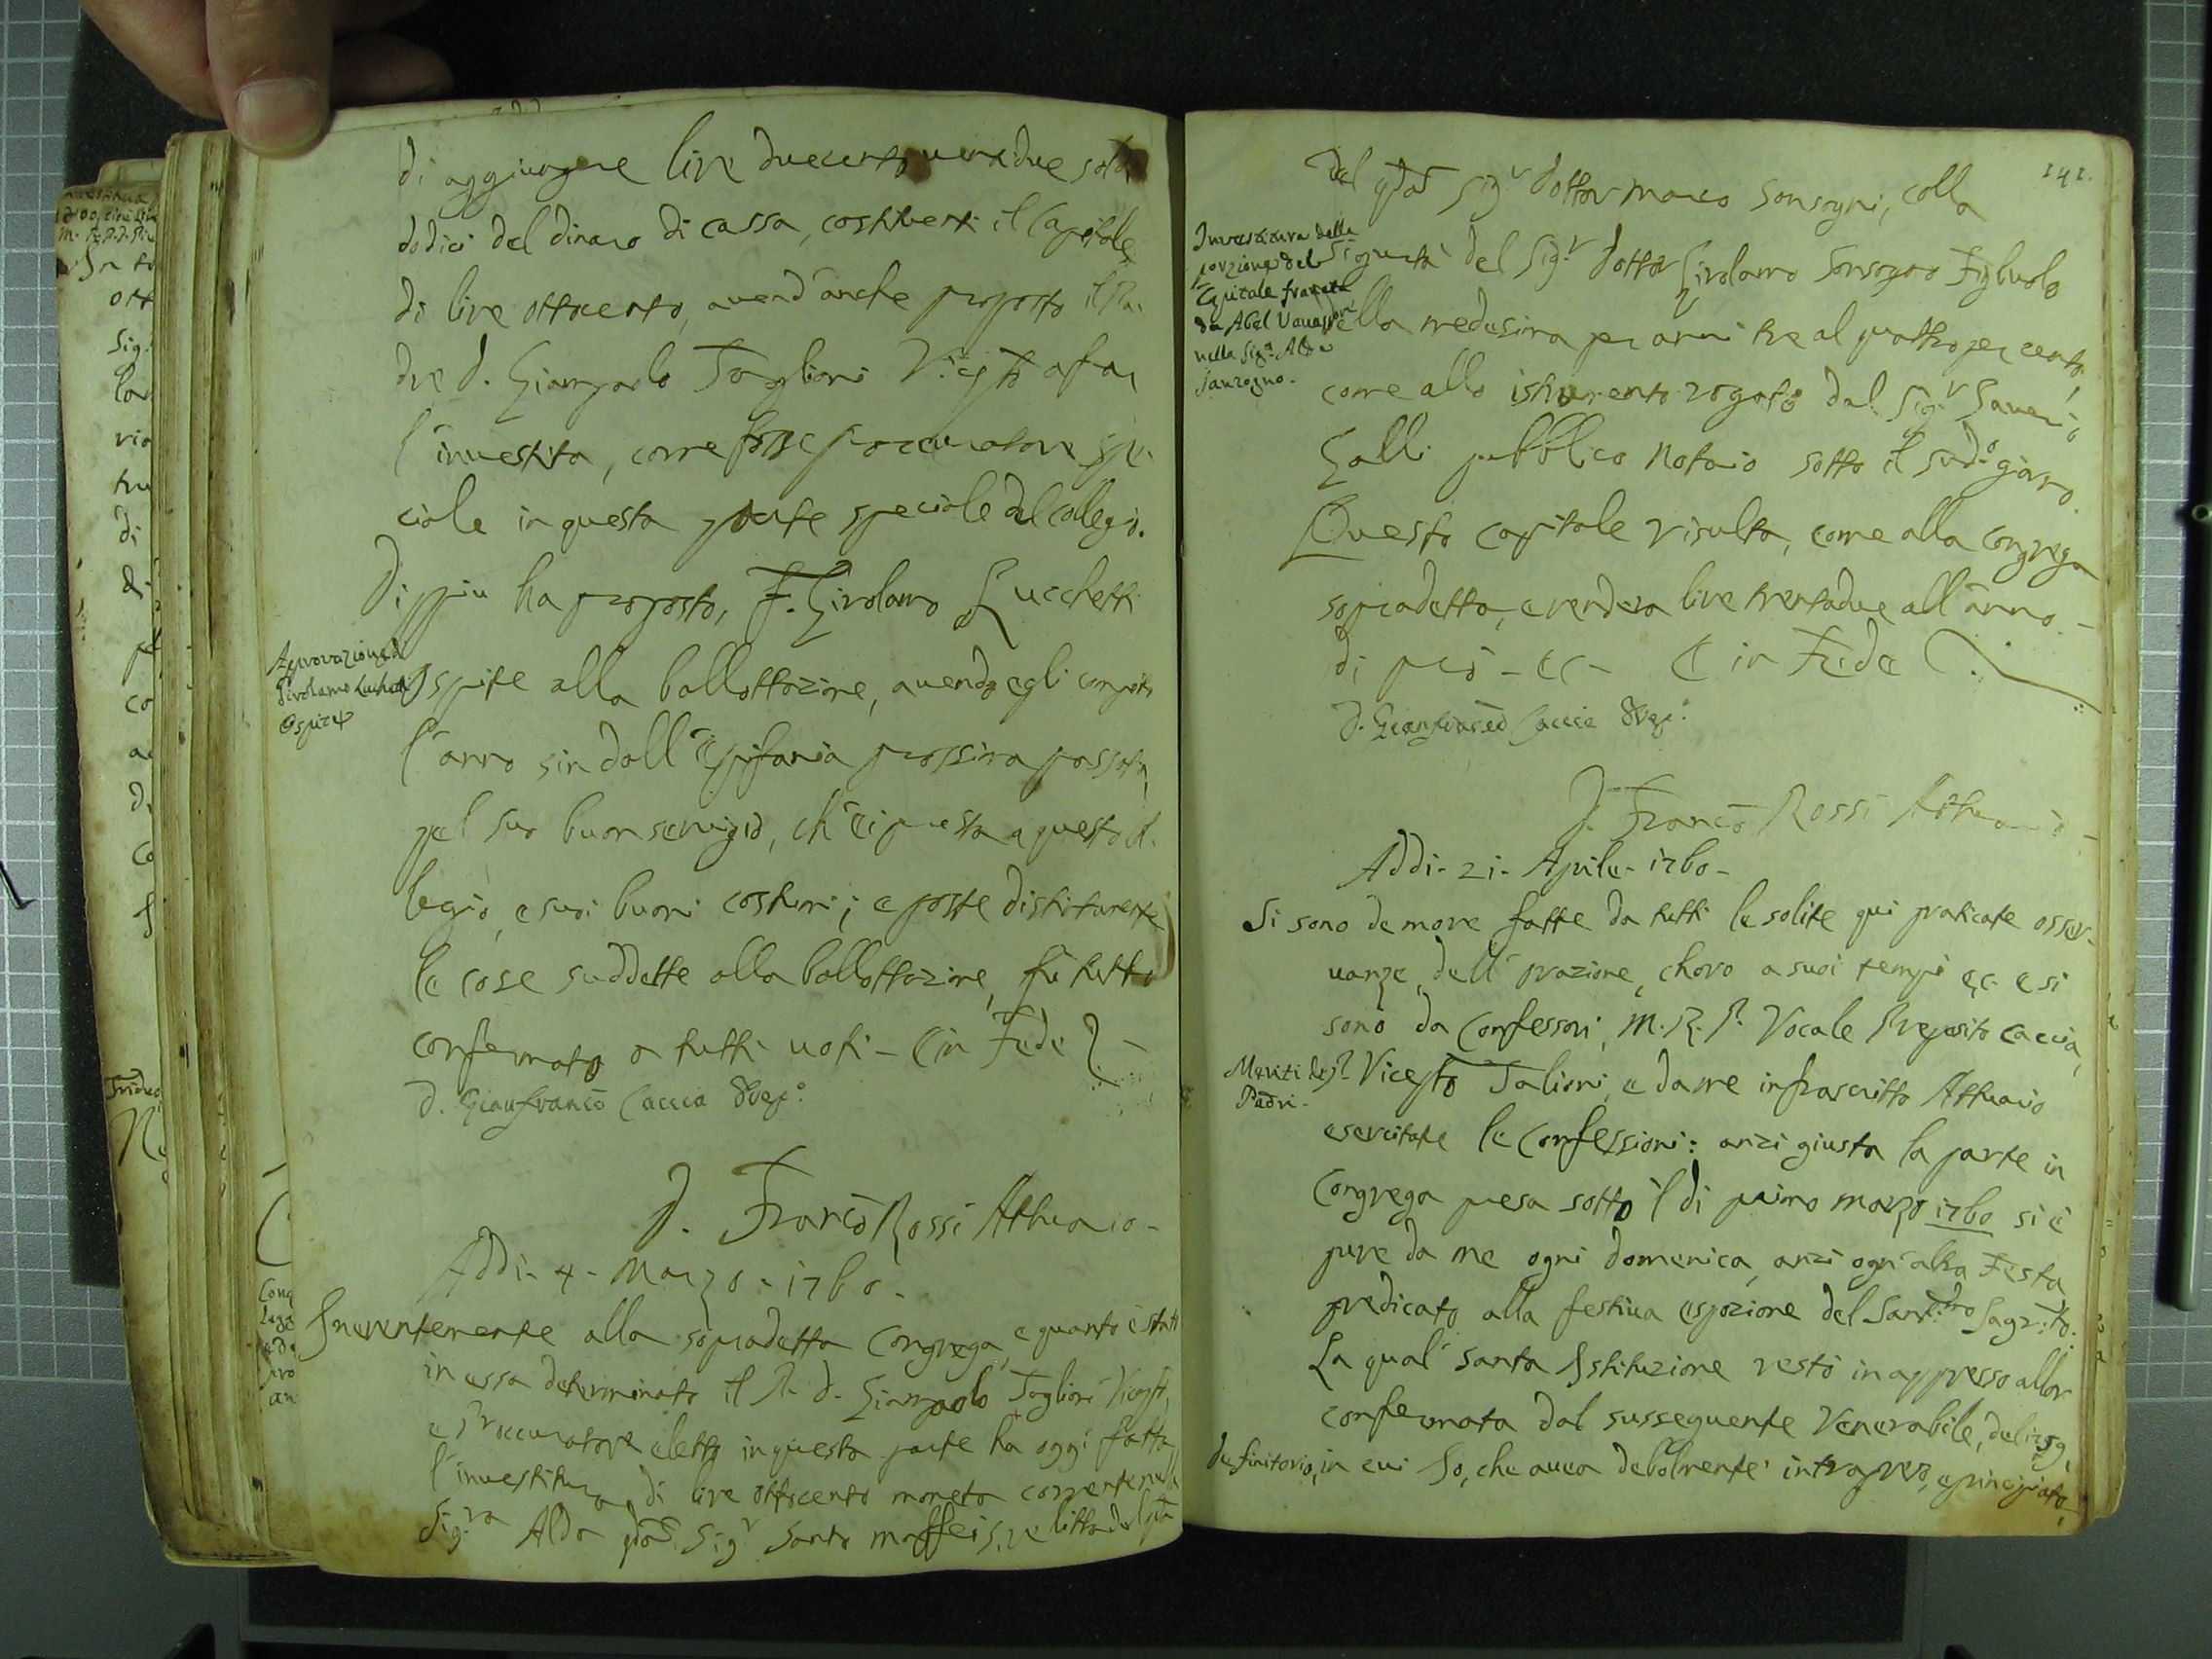 di aggiungere lire duecento uentidue soldi
dodici del dinaro di cassa, costituenti il Capitale
di lire ottocento, auend'anche proposto il Pa-
dre d. Giampaolo Taglioni V.ceP.to a far
l'inuestita, come fosse procuratore spe-
ciale in questa parte speciale del collegio.
Di ppiu ha proposto, F. Girolamo Lucchetti
Approvazione d
Girolamo Luchetti
Ospite
Ospite alla ballottazione, auendo egli compito
l'anno sin dall'Epifania prossima passata,
pel suo buon seruigio, ch'ei presta a questo Col-
legio, e suoi buoni costumi; e poste distintamente
le cose suddette alla ballottazione, fù tutto
confermato a tutti uoti - E in Fede
D. Gianfranco Caccia Prep.o
D. Franco Rossi Attuario -
Addi - 4 - Marzo - 1760 -
Inerentemente alla sopradetta Congrega, e quanto è stato
in essa determinato il P. d. Giampaolo Taglioni Vicepto,
e Procuratore eletto in questa parte ha oggi fatta
l'inuestitura di lire ottocento moneta corrente nella
Sig.ra Alda qdam Sig.r Santo Maffeis, relitta del
141.
Del qdam Sig.r dottor Marco Sonsogni, colla
Inuestitura della
porzione del
Capitale francato
da Abel Vauassori
nella Sig.a Alda
Sanzogno.
Sigurtà del Sig.r dottor Girolamo Sonsogno Figliuolo
della medesima per anni tre al quattro per cento,
come allo istrumento rogato dal Sig.r Saueri.o
Galli pubblico Notaio sotto il sud.o giorno.
Questo capitale risulta, come alla Congrega
sopradetta, e renderà lire trentadue all'anno -
di prò - ec - E in Fede
D. Gianfranco Caccia Prep.o
D. Franco Rossi Attuario -
Addi - 21 - Aprile - 1760 -
Si sono de more fatte da tutti le solite qui praticate osser-
uanze, dell'orazione, choro a suoi tempi ec. e si
sono da Confessori, M. R. P. Vocale Preposito Caccia,
Meriti de
Padri -
P. Vicepto Talioni, e da me infrascritto Attuario
esercitate le Confessioni: anzi giusta la parte in
Congrega presa sotto 'l di primo marzo 1760 si è
pure da me ogni domenica, anzi ogn'altra Festa
predicato alla festiua esposizione del Sant.mo Sagr.to.
La qual santa Istituzione restò in appresso allor
confermata dal susseguente Venerabile, del 1759,
definitorio, in cui Io, che auea debolmente intrapreso, e principiato,